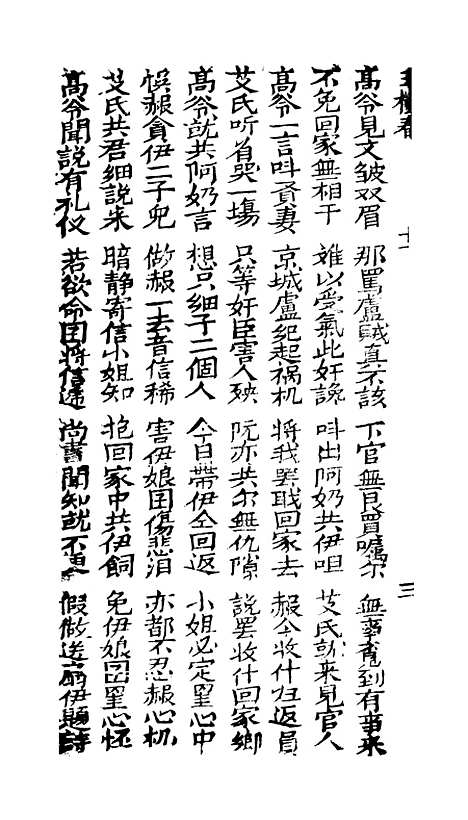 玉樓春 十 三
髙爷見文皱双眉 那罵盧賊真不該 下官無日曾嘱尔 無事寛到有事來
不免回家無相干 难以受氣此奸讒 叫出阿奶共伊呾 艾氏就来見官人
髙爷一言叫贤妻 京城盧杞起祸机 将我罢职回家去 赧今收什归返員
艾氏听着哭一塲 只等奸臣害人殃 阮亦共尔無仇隙 說罢收什回家鄉
髙爷就共阿奶言 想只細子二個人 今日帶伊仝回返 小姐必定罣心中
悮赧貪伊二子児 做赧一去音信稀 害伊娘囝傷悲泪 亦都不忍赧心机
艾氏共君細說来 暗静寄信小姐知 抱回家中共伊飼 免伊娘囝罣心怀
髙爷聞說有礼仪 若欲命囝将信遞 尚書聞知就不 假做送扇伊題詩